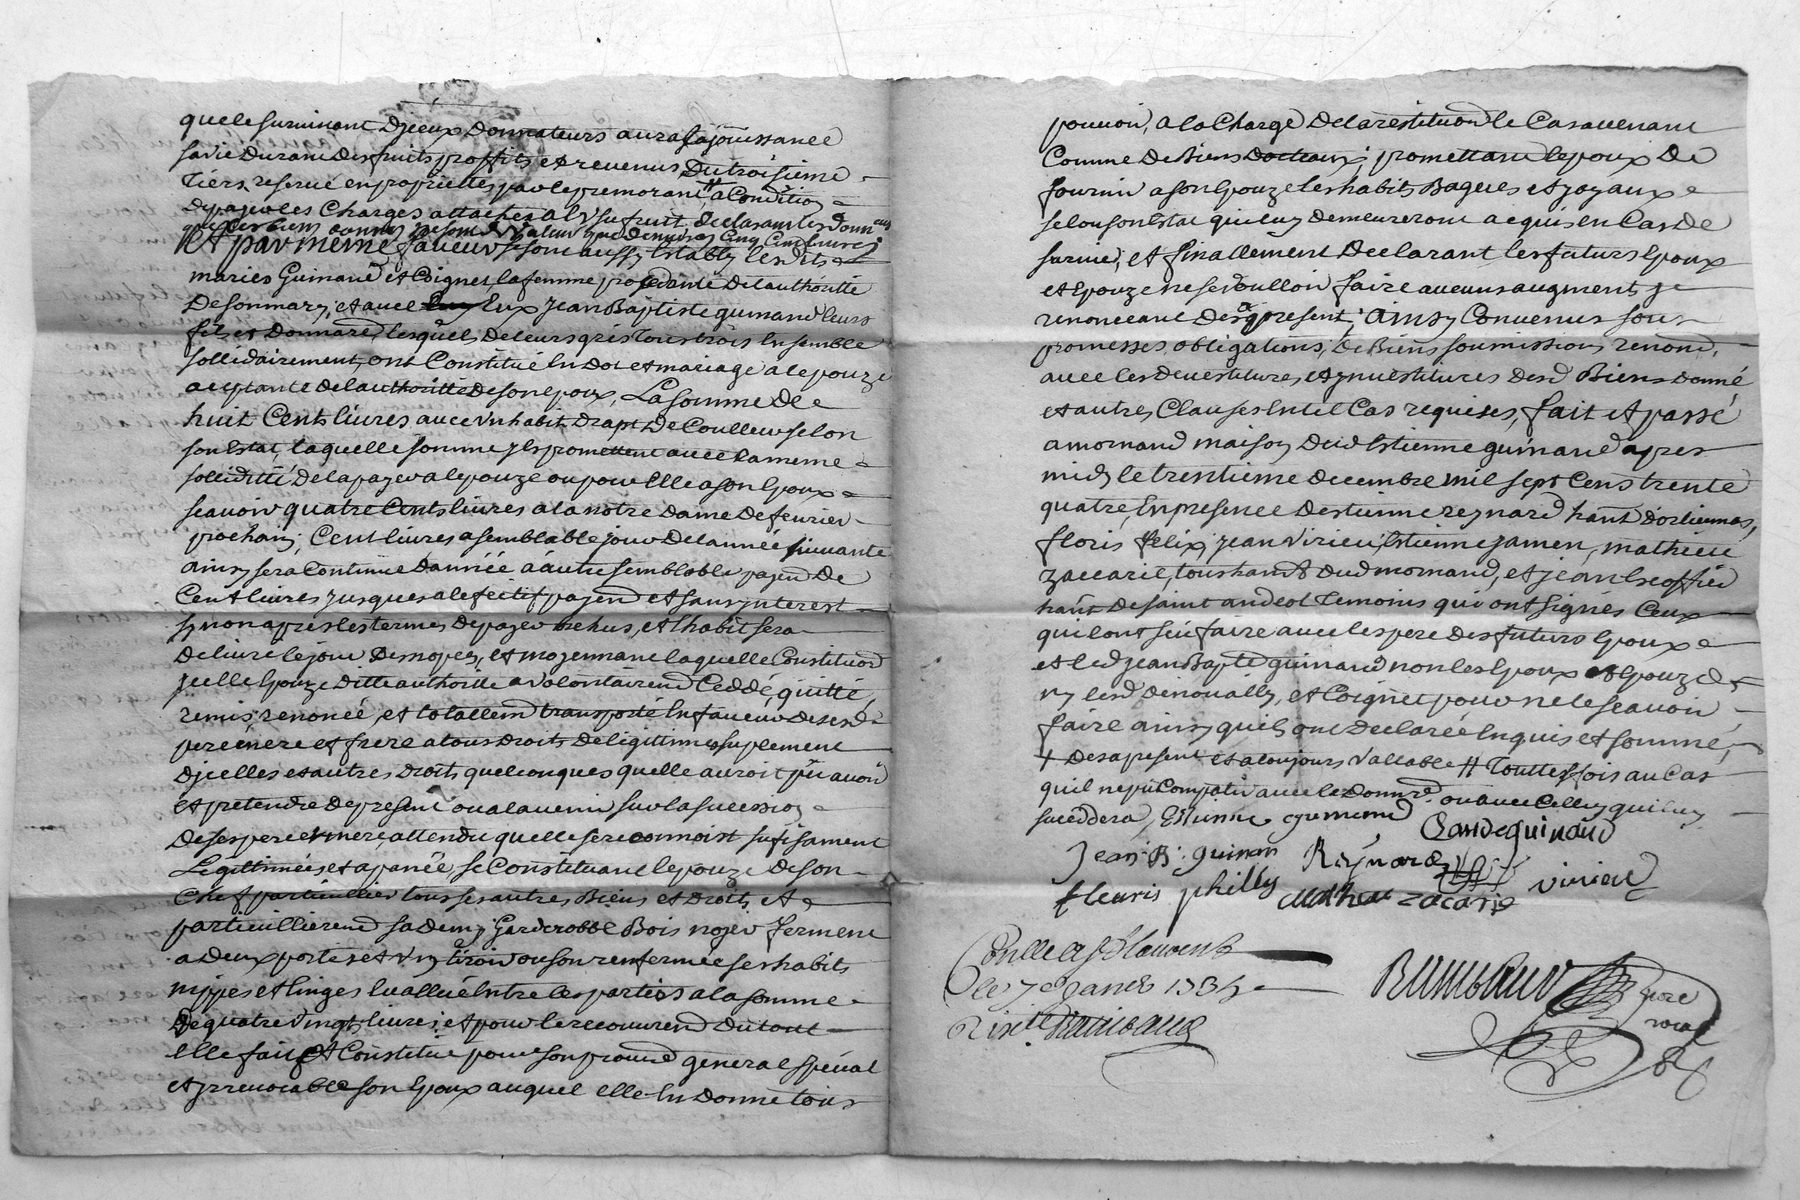 que le survivant d'jceux donnateurs aura la jouissance
sa vie durant des fruits proffits et revenus du troisieme
tiers reservé en proprietté par le premorant, # a condition
de payer les charges attachés a l'usufruit de la
que les biens donnés ne sont de valeur que de cinq cent livres
Et par meme faveur se sont aussy Etably lesdits
mariés Guinand et Coignet, la femme procedante de lauthorité
de son mary, et avec Eux Jean Baptiste guinand leurs
fils et donnare, lesquels de leurs grés tous trois Ensemble
sollidairement, ont Constitué En dot et mariage a lepouze
acceptante de lauthoritté de son epoux, La somme de
huit Cents livres avec un habit drapt de Coulleur selon
son Estat, laquelle somme jls promettent avec la meme
solliditté de la payer a lepouze ou pour Elle a son Epoux
scavoir quatre Cents livres a la notre dame de fevrier
prochain, Cent livres a semblable jour de lannée suivante
ainsy sera Continué d'année a autre semblable payemt de
Cent livres jusques a lefectif payemt et sans jnterest
synon apres les termes de payer Echus, et lhabit sera
delivré le jour des nopces, et moyennant laquelle Constitution
jcelle Epouze ditte authorité a volontairemt Ceddé, quitté,
remis, renoncé, et totallemt transporté En faveur de sesd
pere mere et frere a tous droits de legittimes suplement
djcelles et autres droits quelconques quelle auroit pu avoir
et pretendre de present ou a lavenir sur la sucession
de ses pere et mere, attendu quelle se reconnoist sufisament
Legittimée et apanée, se Constituant lepouze de son
Chef particullier tous ses autres Biens et droits, et
particullieremt sa demy garderobbe Bois noyer fermant
a deux portes et un tiroir ou son renfermée ses habits
nippes et linges Evallué Entre les parties a la somme
de quatre vingt livres, et pour le recouvremt du tout
elle fait et Constitue pour son procur general spécial
et jrrevocable son Epoux auquel elle En donne tous
pouvoir, a la Charge de la restitution le Cas avenant
Comme de Biens docteaux, promettant lepoux de
fournir a son Epouze les habits Bagues et joyaux
selon son Estat qui luy demeureront acquis En Cas de
survie, et finallement declarant les futurs Epoux
et Epouze ne se voulloir faire aucuns augments y
renonceant des a present, ainsy Convenus sous
promesses, obligations, de Biens soumissions, renon,
avec les devestitures, et jnvestitures desd Biens donné
et autres, Clauses En tel Cas requises, fait et passé
a mornand maison dud Estienne guinand apres
midy le trentieme decembre mil sept Cens trente
quatre, En presence d'estienne reynard hant d'orlienas,
floris felix, jean Virieu, Estienne jamen, mathieu
zaccarie, tous hants dud mornand, et jean
hant de saint andeol temoins qui ont signés Ceux
qui lont scu faire avec les pere des futurs Epoux
et led jean Bapte guinand non les Epoux et Epouze
ny lesd denoually, et Coignet pour ne le scavoir
faire ainsy quils ont declarée Enquis et sommé,
+ des a present et a toujours vallable # touttesfois au Cas
quil ne put Compatir avec le donnre ou avec Celluy qui luy
succeddera, Estienne Claude guinand
jean B. guinan Reynard
fleuris philly Mathieu zacarie virieu
Conlle a St Laurent
le 7e janer 1735